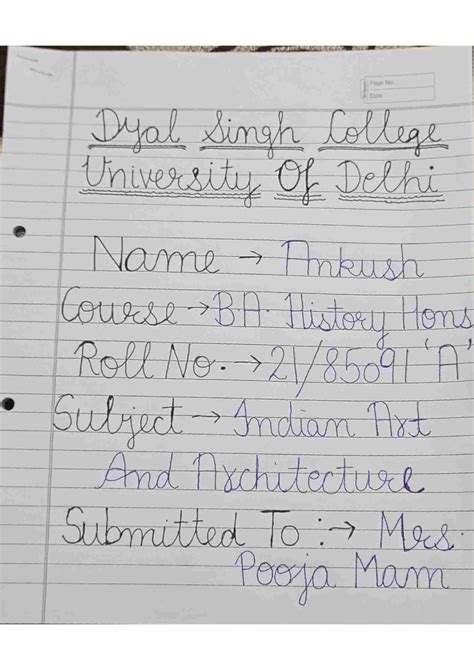 Page No.
Date
Dyal Singh College
University Of Delhi
Name → Ankush
Course → B.A. History Hons
Roll No. → 21/85091 'A'
Subject → Indian Art
And Architecture
Submitted To :→ Mrs.
Pooja Mam